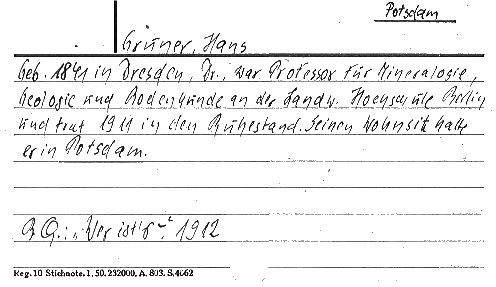 Potsdam
Gruner, Hans
Geb. 1841 in Dresden, Dr., war Professor für Mineralogie,
Geologie und Bodenkunde an der Landw. Hochschule Berlin
und trat 1911 in den Ruhestand. Seinen Wohnsitz hatte
er in Potsdam.
B Q.: „Wer ist's“. 1912
Reg. 10 Stichnote. 1, 50. 232000, A. 803. S. 4662